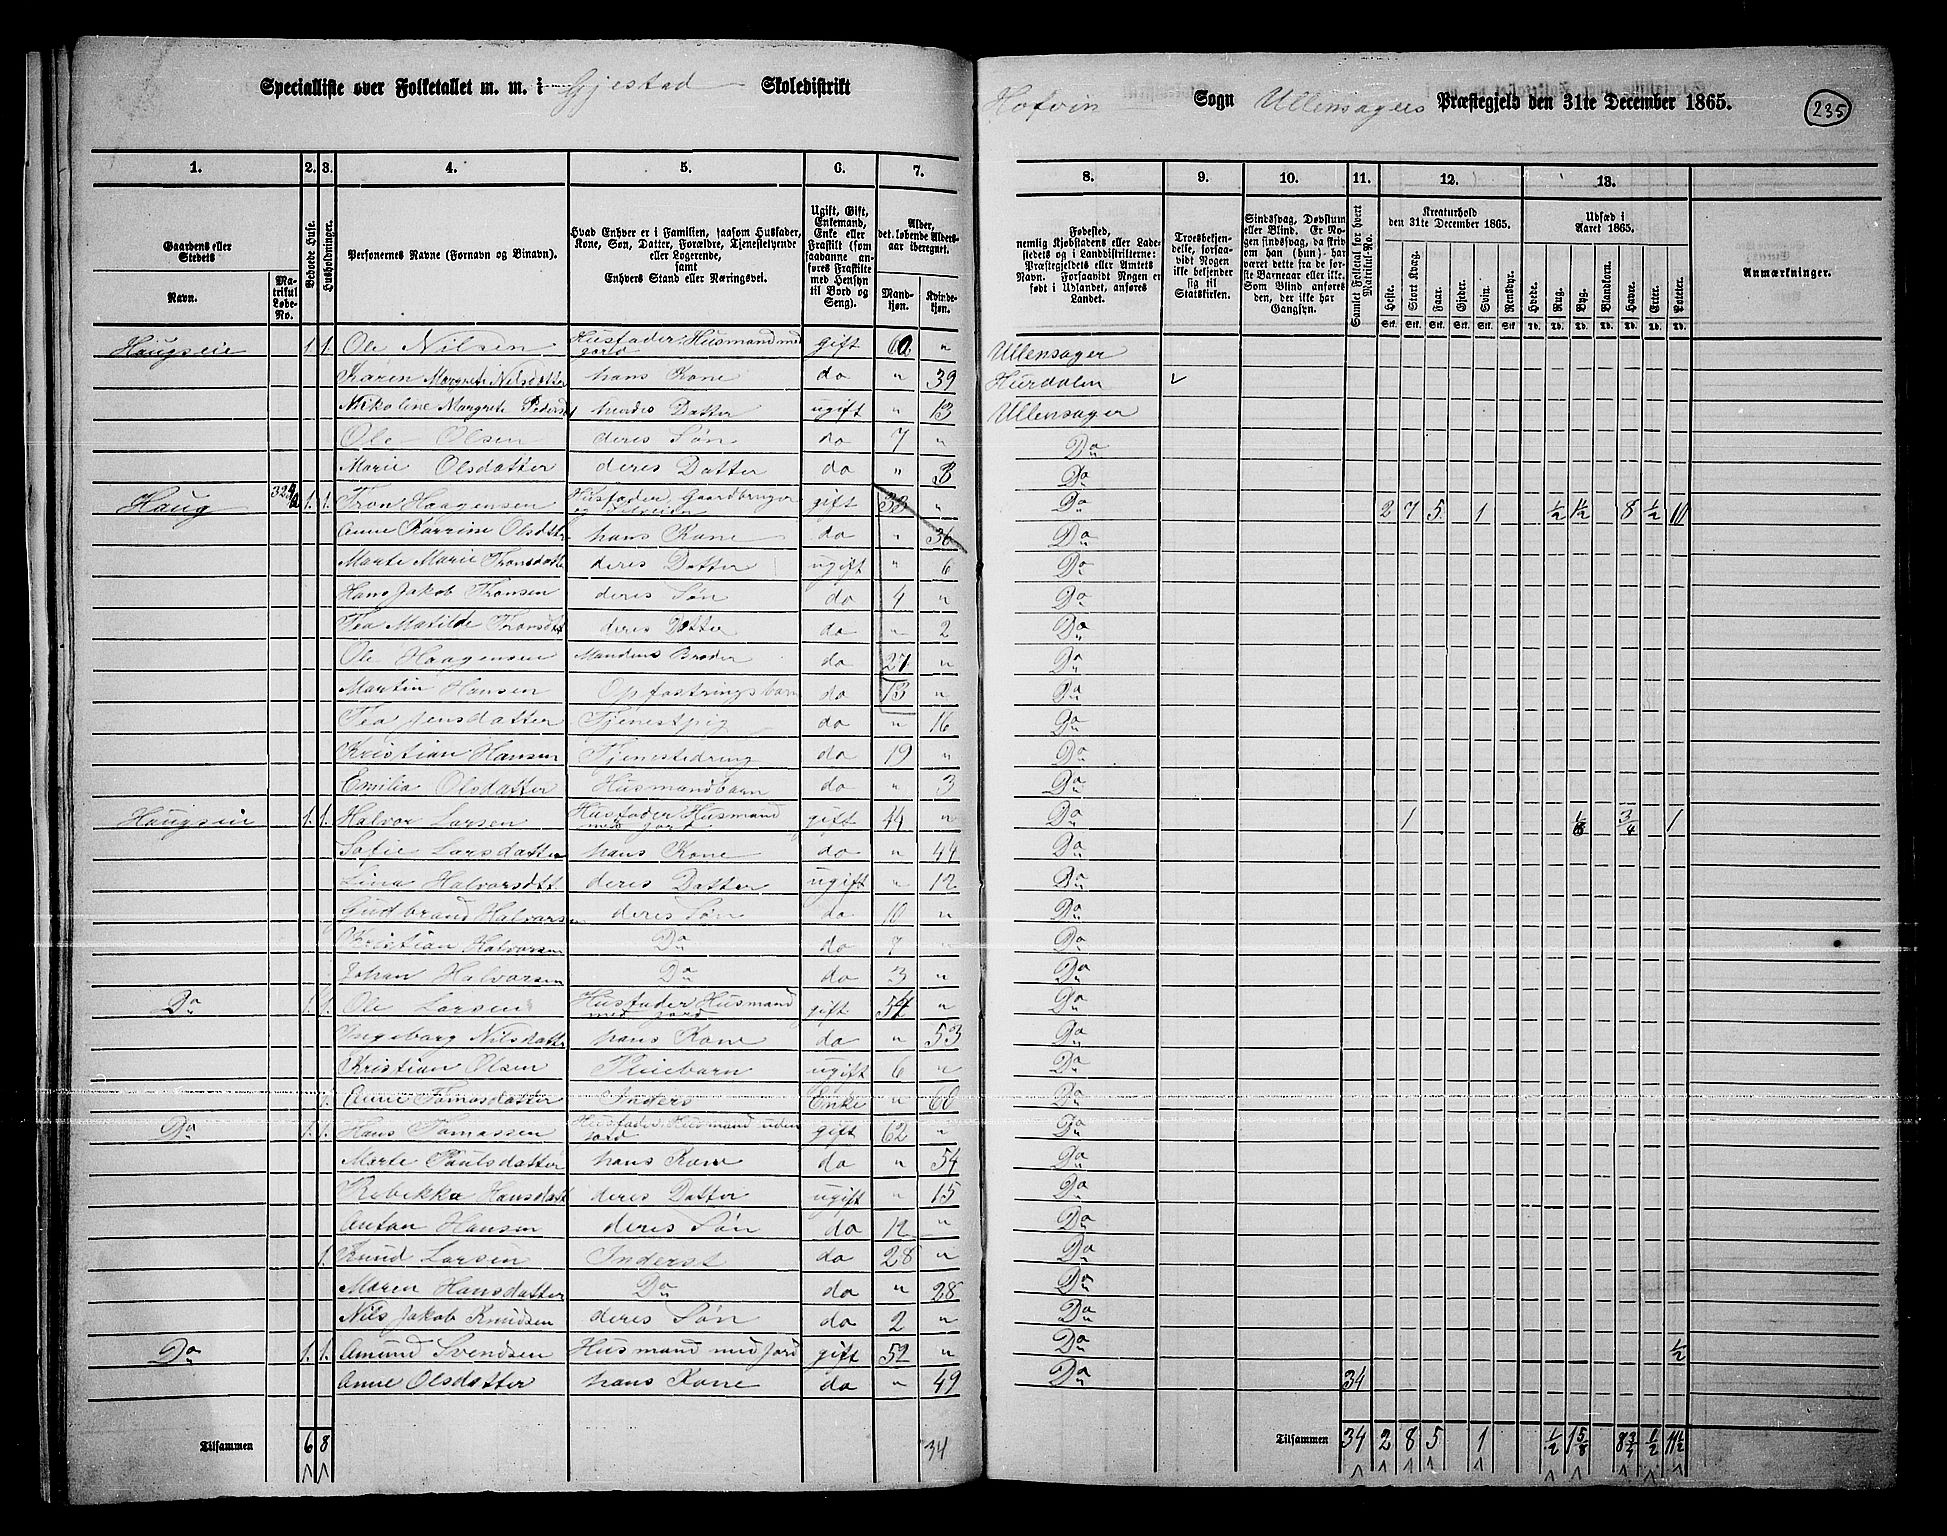 Specialliste over Folketallet m. m. i Gjestad Skoledistrikt
Hofvin Sogn Ullensagers Præstegjeld den 31te December 1865.
235
1. 2. 3. 4. 5. 6. 7. 8. 9. 10. 11. 12. 13.
Gaardens eller Stedets Navn.
Matrikul Løbe-No.
Beboede Huse.
Husholdninger.
Personernes Navne (Fornavn og Binavn).
Hvad Enhver er i Familien, saasom Husfader, Kone, Søn, Datter, Forældre, Tjenestetyende eller Logerende, samt Enhvers Stand eller Næringsvei.
Ugift, Gift, Enkemand, Enke eller Fraskilt (som saadanne anføres Fraskilte med Hensyn til Bord og Seng).
Alder, det løbende Alders-aar iberegnet.
Mandkjøn. Kvindekjøn.
Fødested, nemlig Kjøbstadens eller Ladestedets og i Landdistrikterne: Præstegjeldets eller Amtets Navn. Forsaavidt Nogen er født i Udlandet, anføres Landet.
Troesbekjendelse, forsaavidt Nogen ikke bekjender sig til Statskirken.
Sindssvag, Døvstum eller Blind. Er Nogen sindssvag, da skrives om han (hun) har været dette fra de første Barneaar eller ikke. Som Blind anføres den, der ikke har Gangsyn.
Samlet Folketal for hvert Matrikul-No.
Kreaturhold den 31te December 1865.
Heste. Stort Kvæg. Faar. Gjeder. Svin. Rensdyr.
Udsæd i Aaret 1865.
Hvede. Rug. Byg. Blandkorn. Havre. Erter. Poteter.
Anmærkninger.
Haugseie 1. 1. Ole Nilsen Husfader. Husmand med jord gift 60 " Ullensager
Karen Margrete Nilsdatter hans Kone do " 39 Hurdalen
Nikoline Margrete Pedersd hendes Datter ugift " 13 Ullensager
Ole Olsen deres Søn do 7 " Do
Marie Olsdatter deres Datter do " 3 Do
Haug 1. 1. Tron Haagensen Husfader Gaardbruger og Selveier gift " Do 2 7 5 1 1/2 1 1/2 8 1/2 10
Anne Karrine Olsdatter hans Kone do " 36 Do
Marte Marie Tronsdatter deres Datter ugift " 6 Do
Hans Jakob Tronsen deres Søn do 4 " Do
Tea Matilde Tronsdt deres Datter do " 2 Do
Ole Haagensen Mandens Broder do 27 " Do
Martin Hansen Opfostringsbarn do 13 " Do
Tea Jensdatter Tjenestpig do " 16 Do
Kristian Hansen Tjenestedreng do 19 " Do
Emilia Olsdatter Husmandbarn do " 3 Do
Haugseie 1. 1. Halvor Larsen Husfader Husmand med jord gift 44 " Do 1 1/8 3/4 1
Sofie Larsdatter hans Kone do " 44 Do
Lina Halvorsdtt deres Datter ugift " 12 Do
Gudbrand Halvorsen deres Søn do 10 " Do
Kristian Halvorsen Do do 7 " Do
Johan Halvorsen Do do 3 " Do
Do 1. 1. Ole Larsen Husfader Husmand med jord gift 54 " Do
Ingeborg Nilsdatter hans Kone do " 53 Do
Kristian Olsen Pleiebarn ugift 6 " Do
1. Anne Tomasdatter Inders Enke " 60 Do
Do 1. 1. Hans Tomassen Husfader Husmand uden jord gift 62 " Do
Marte Paulsdatter hans Kone do " 54 Do
Rebekka Hansdatt deres Datter ugift " 15 Do
Anton Hansen deres Søn do 12 " Do
1. Knud Larsen Inderst do 28 " Do
Maren Hansdatter Do do " 28 Do
Nils Jakob Knudsen deres Søn do 2 " Do
Do 1. 1. Amund Svendsen Husmand med jord gift 52 " Do 1/2
Anne Olsdatter hans Kone do " 49 Do 34
Tilsammen 6 8 34
Tilsammen 34 2 8 5 1 1/2 1 5/8 8 3/4 1/2 11 1/2